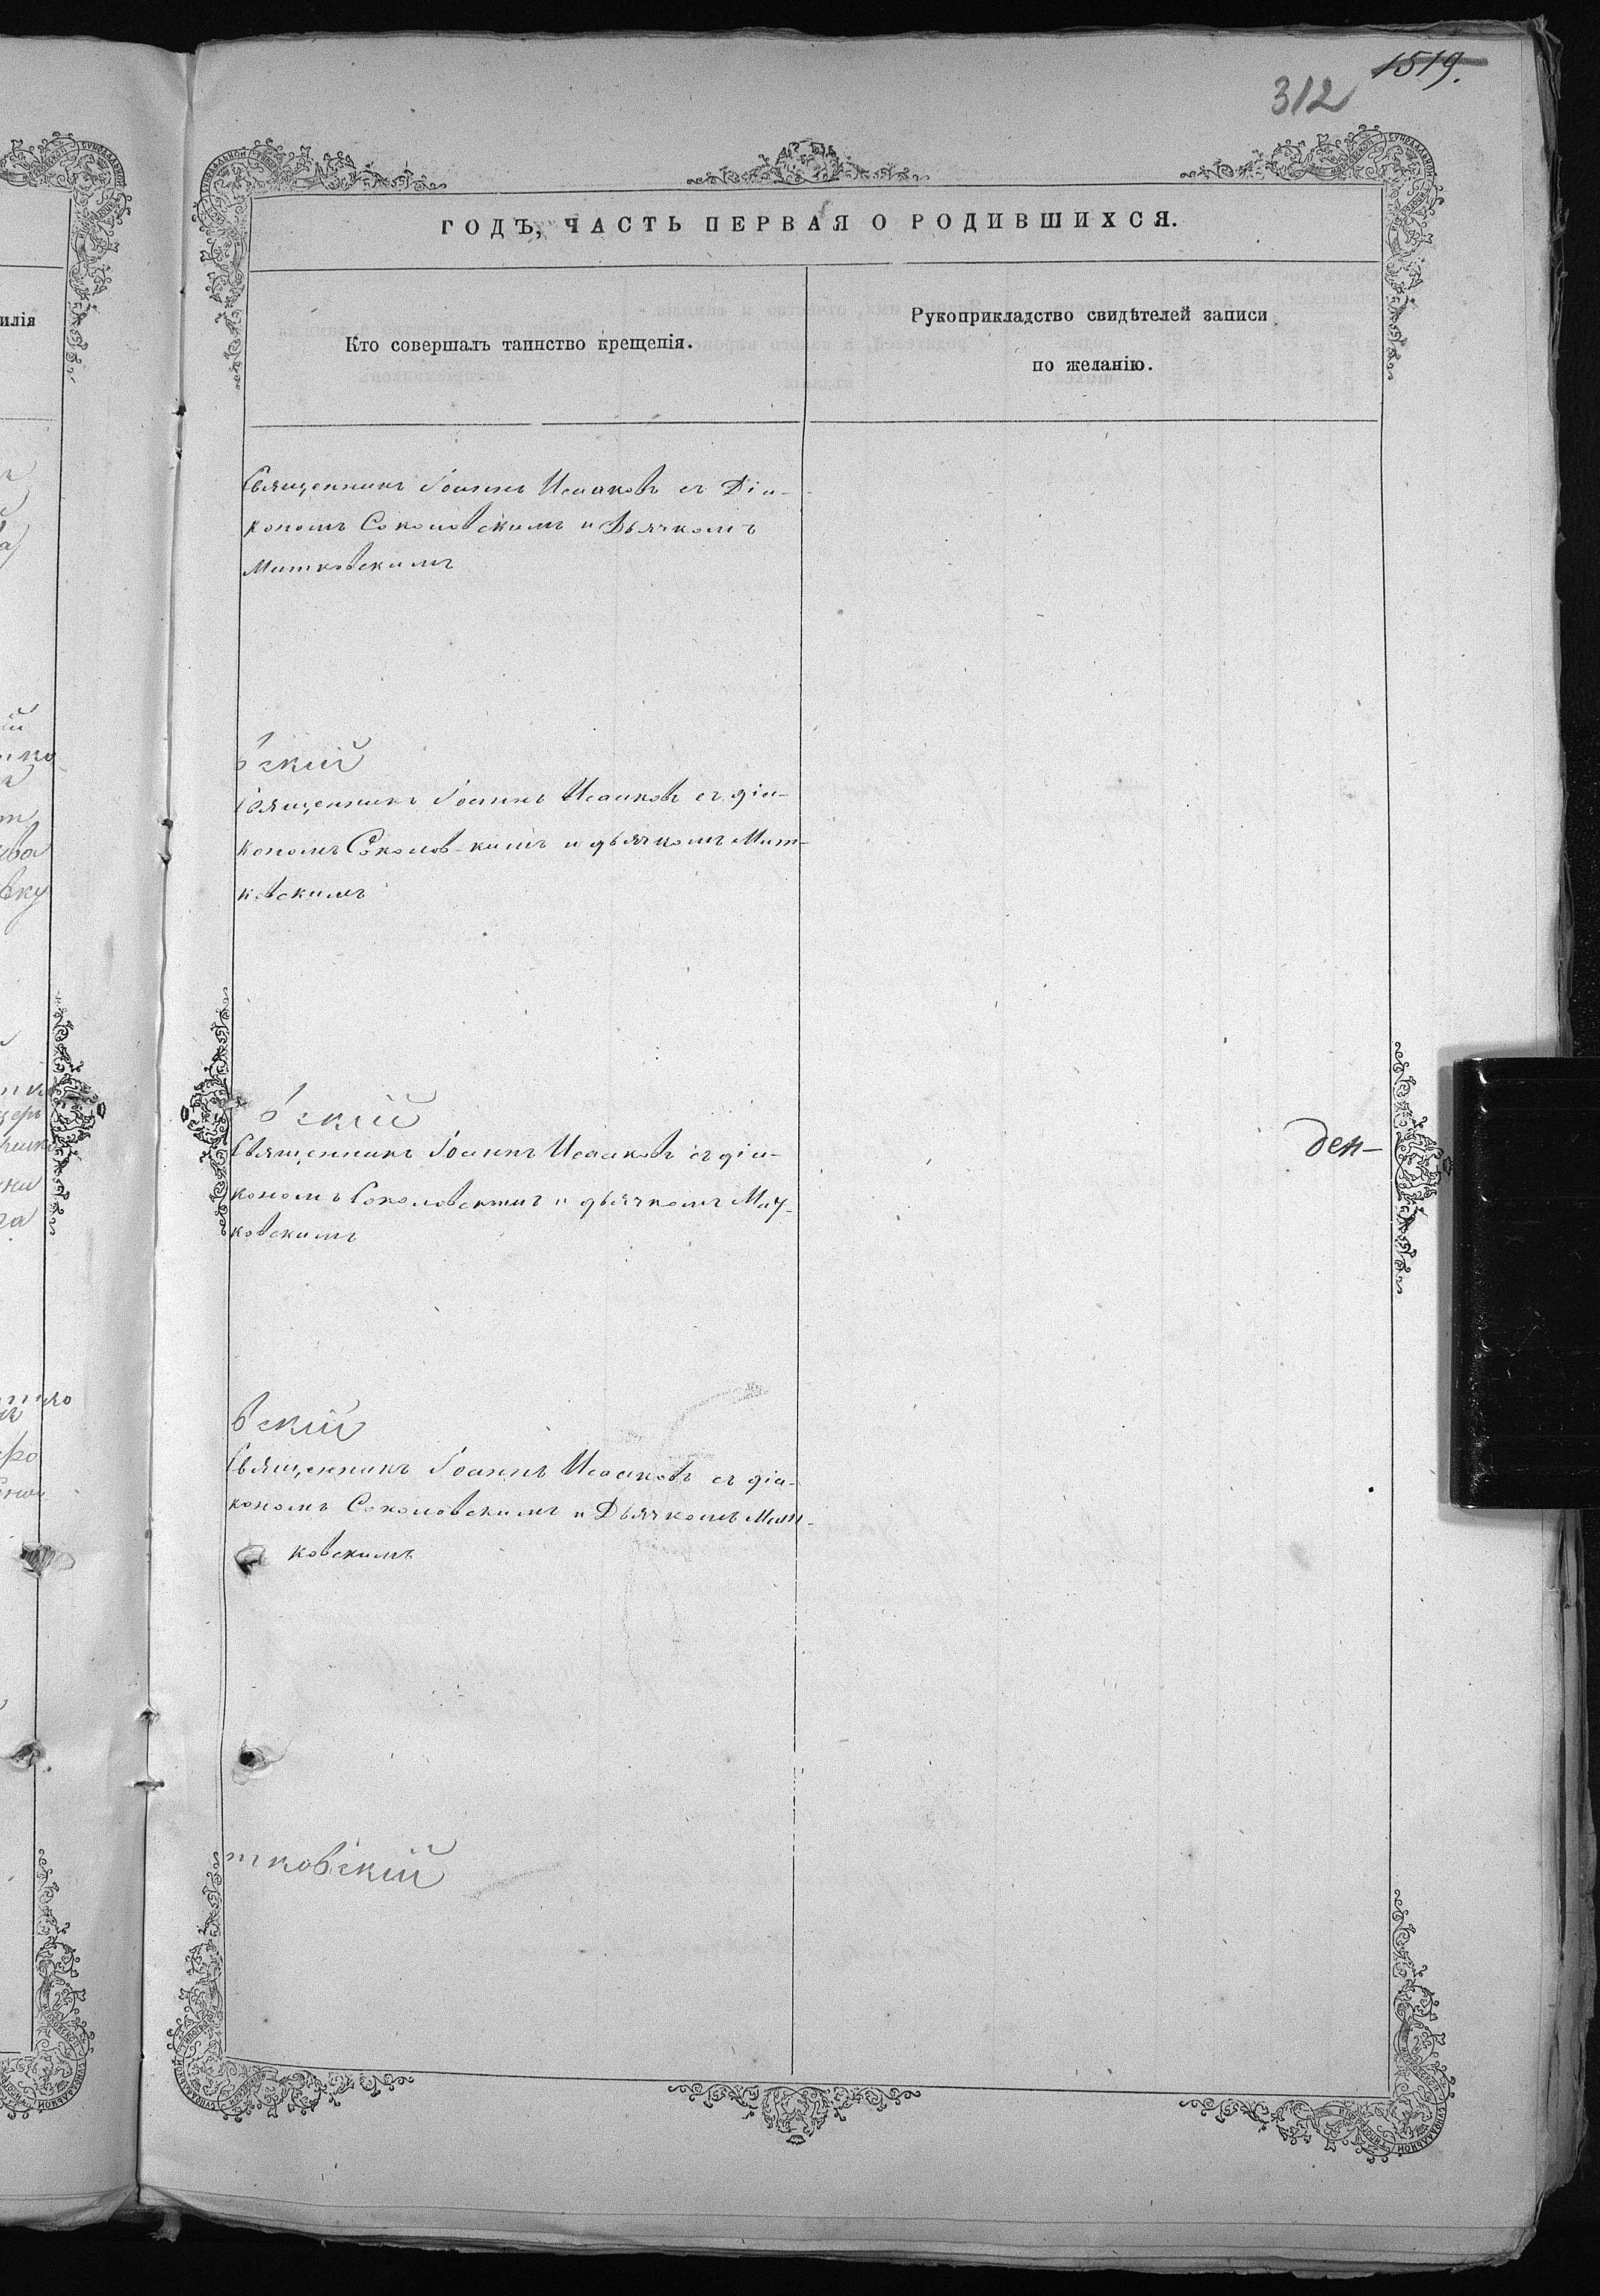 1519.
312
ГОДЪ, ЧАСТЬ ПЕРВАЯ О РОДИВШИХСЯ.
илія
Кто совершалъ таинство крещенія.
Рукоприкладство свидѣтелей записи
по желанію.
Священникъ Іоаннъ Исааковъ съ Діа-
кономъ Соколовскимъ и Дьячкомъ
Митковскимъ
вскій
Священникъ Іоаннъ Исааковъ съ діа-
кономъ Соколовскимъ и дьячкомъ Мит-
ковскимъ
вскій
Священникъ Іоаннъ Исааковъ съ діа-
кономъ Соколовскимъ и дьячкомъ Мит-
ковскимъ
ден-
вскій
Священникъ Іоаннъ Исааковъ съ діа-
кономъ Соколовскимъ и Дьячкомъ Мит-
ковскимъ
тковскій